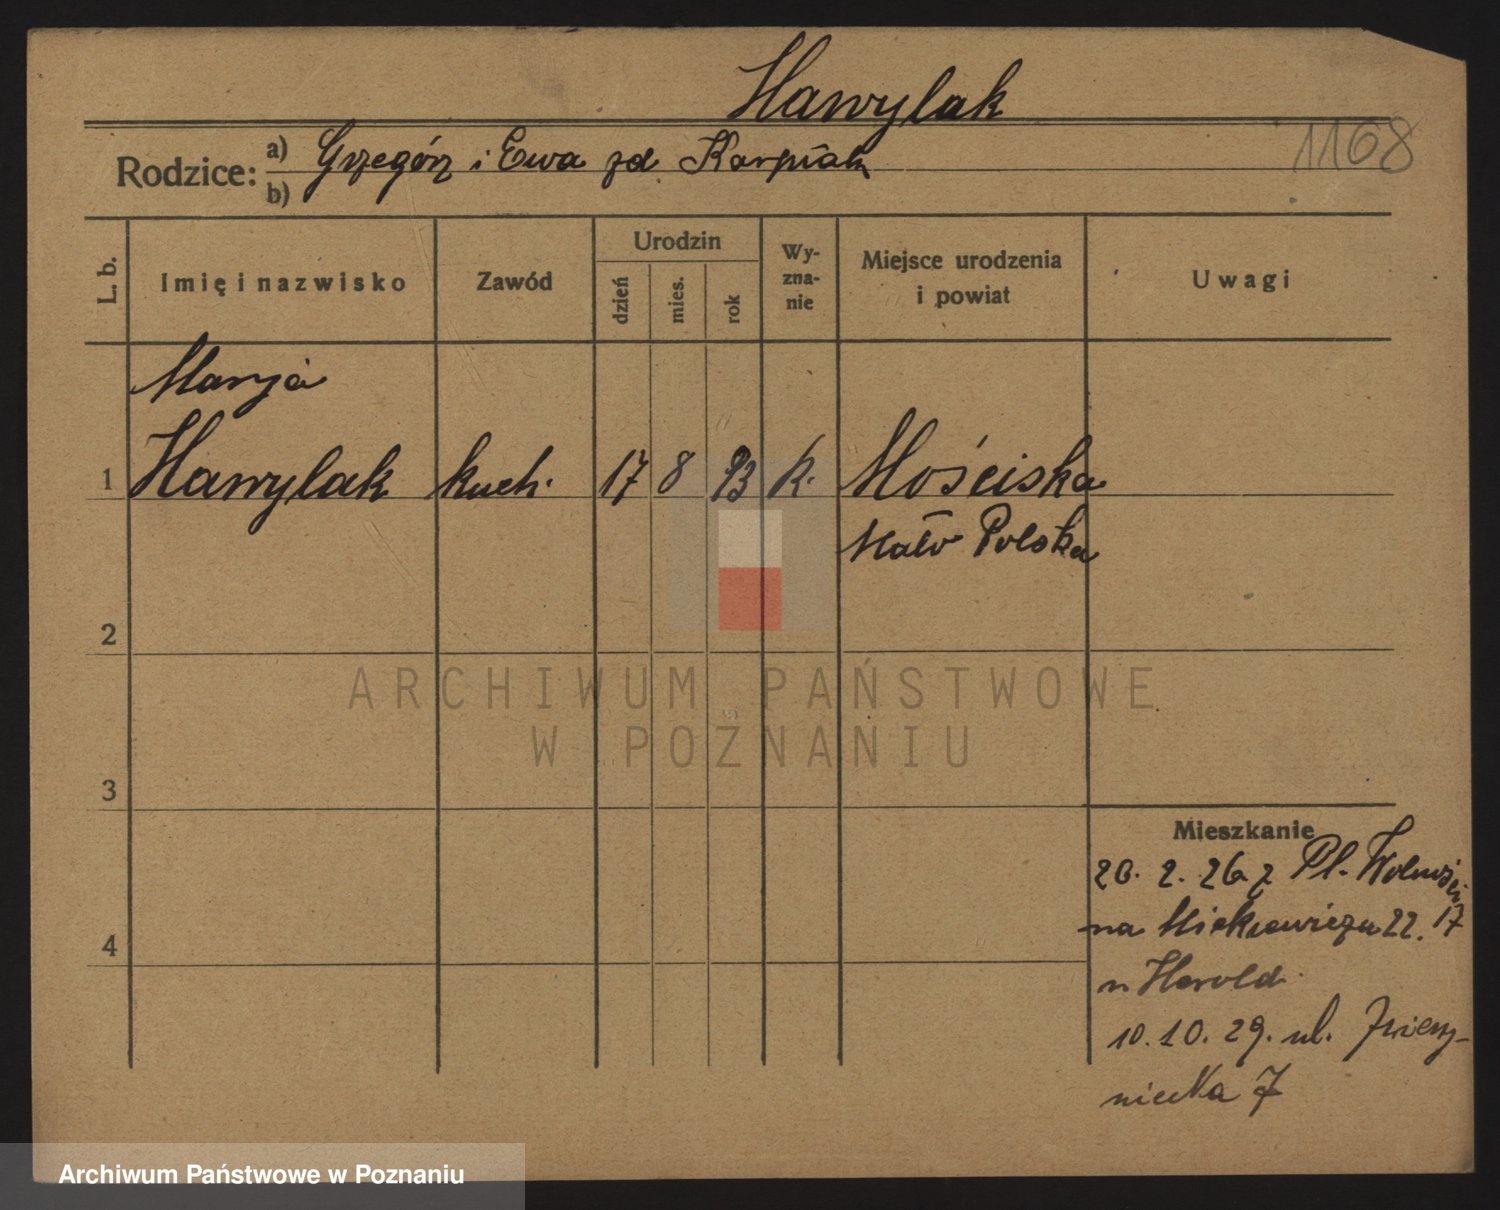 Hawylak
1168
Rodzice: a) Grzegórz i Ewa zd. Karpiak
b)
L. b.
Imię i nazwisko
Zawód
Urodzin
dzień
mies.
rok
Wy-
zna-
nie
Miejsce urodzenia
i powiat
Uwagi
Marja
1 Hawylak kuch. 17 8 93 k. Mościska
Mało Polska
2
ARCHIWUM PAŃSTWOWE
W POZNANIU
3
Mieszkanie
20. 2. 26 z Pl. Wolności 17
na Mickiewicza 22.
u Herold
4
10. 10. 29. ul. Zwierzy-
niecka 7
Archiwum Państwowe w Poznaniu